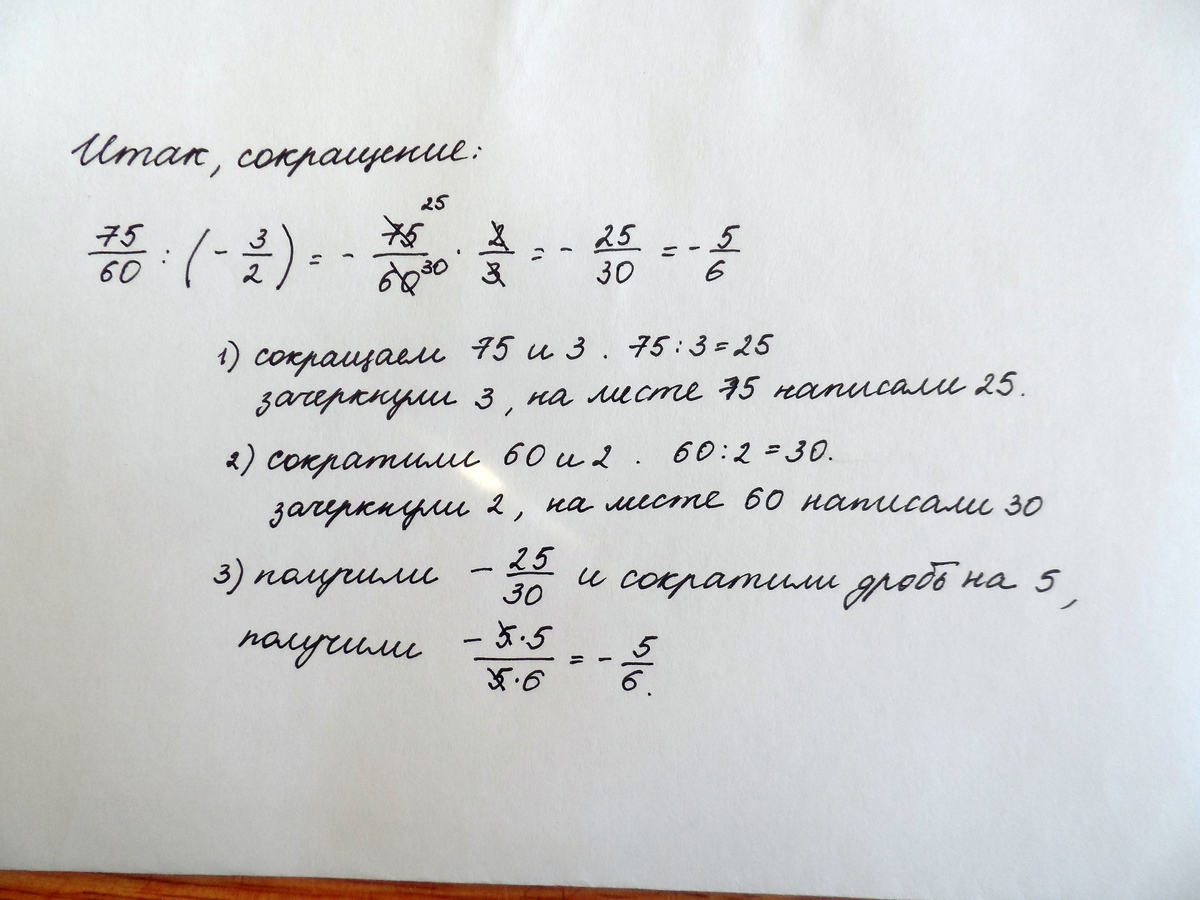 Итак, сокращение:
75/60 : (- 3/2) = - 75 25/60 30 · 2/3 = - 25/30 = - 5/6
1) сокращаем 75 и 3. 75:3=25
зачеркнули 3, на месте 75 написали 25.
2) сократили 60 и 2. 60:2=30.
зачеркнули 2, на месте 60 написали 30
3) получили - 25/30 и сократили дробь на 5,
получили - 5·5/5·6 = - 5/6.